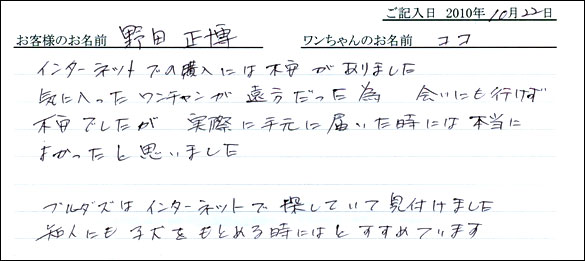 ご記入日 2010年10月22日
お客様のお名前 野田 正博 ワンちゃんのお名前 ココ
インターネットでの購入には不安がありました
気に入ったワンチャンが 遠方だった為 会いにも行けず
不安でしたが 実際に手元に届いた時には本当に
よかったと思いました
ブルダズはインターネットで探していて見付けました
知人にも子犬をもとめる時にはとすすめています